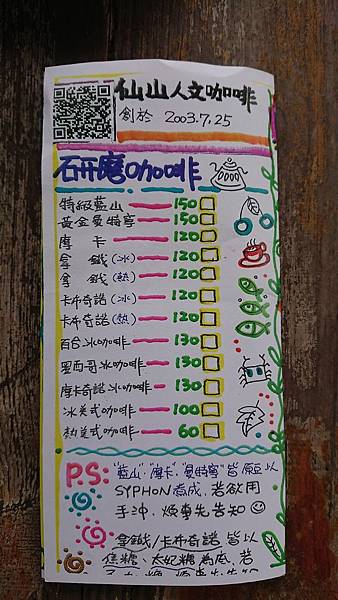 仙山人文咖啡
創於 2003.7.25
研磨咖啡
特級藍山 150
黃金曼特寧 150
摩卡 120
拿鐵(冰) 120
拿鐵(熱) 120
卡布奇諾(冰) 120
卡布奇諾(熱) 120
百合冰咖啡 130
墨西哥冰咖啡 130
摩卡奇諾冰咖啡 130
冰美式咖啡 100
熱美式咖啡 60
P.S: "藍山"."摩卡"."曼特寧"皆原豆以
SYPHON煮成,若欲用
手沖,煩事先告知
拿鐵/卡布奇諾皆以
焦糖、太妃糖為底,若